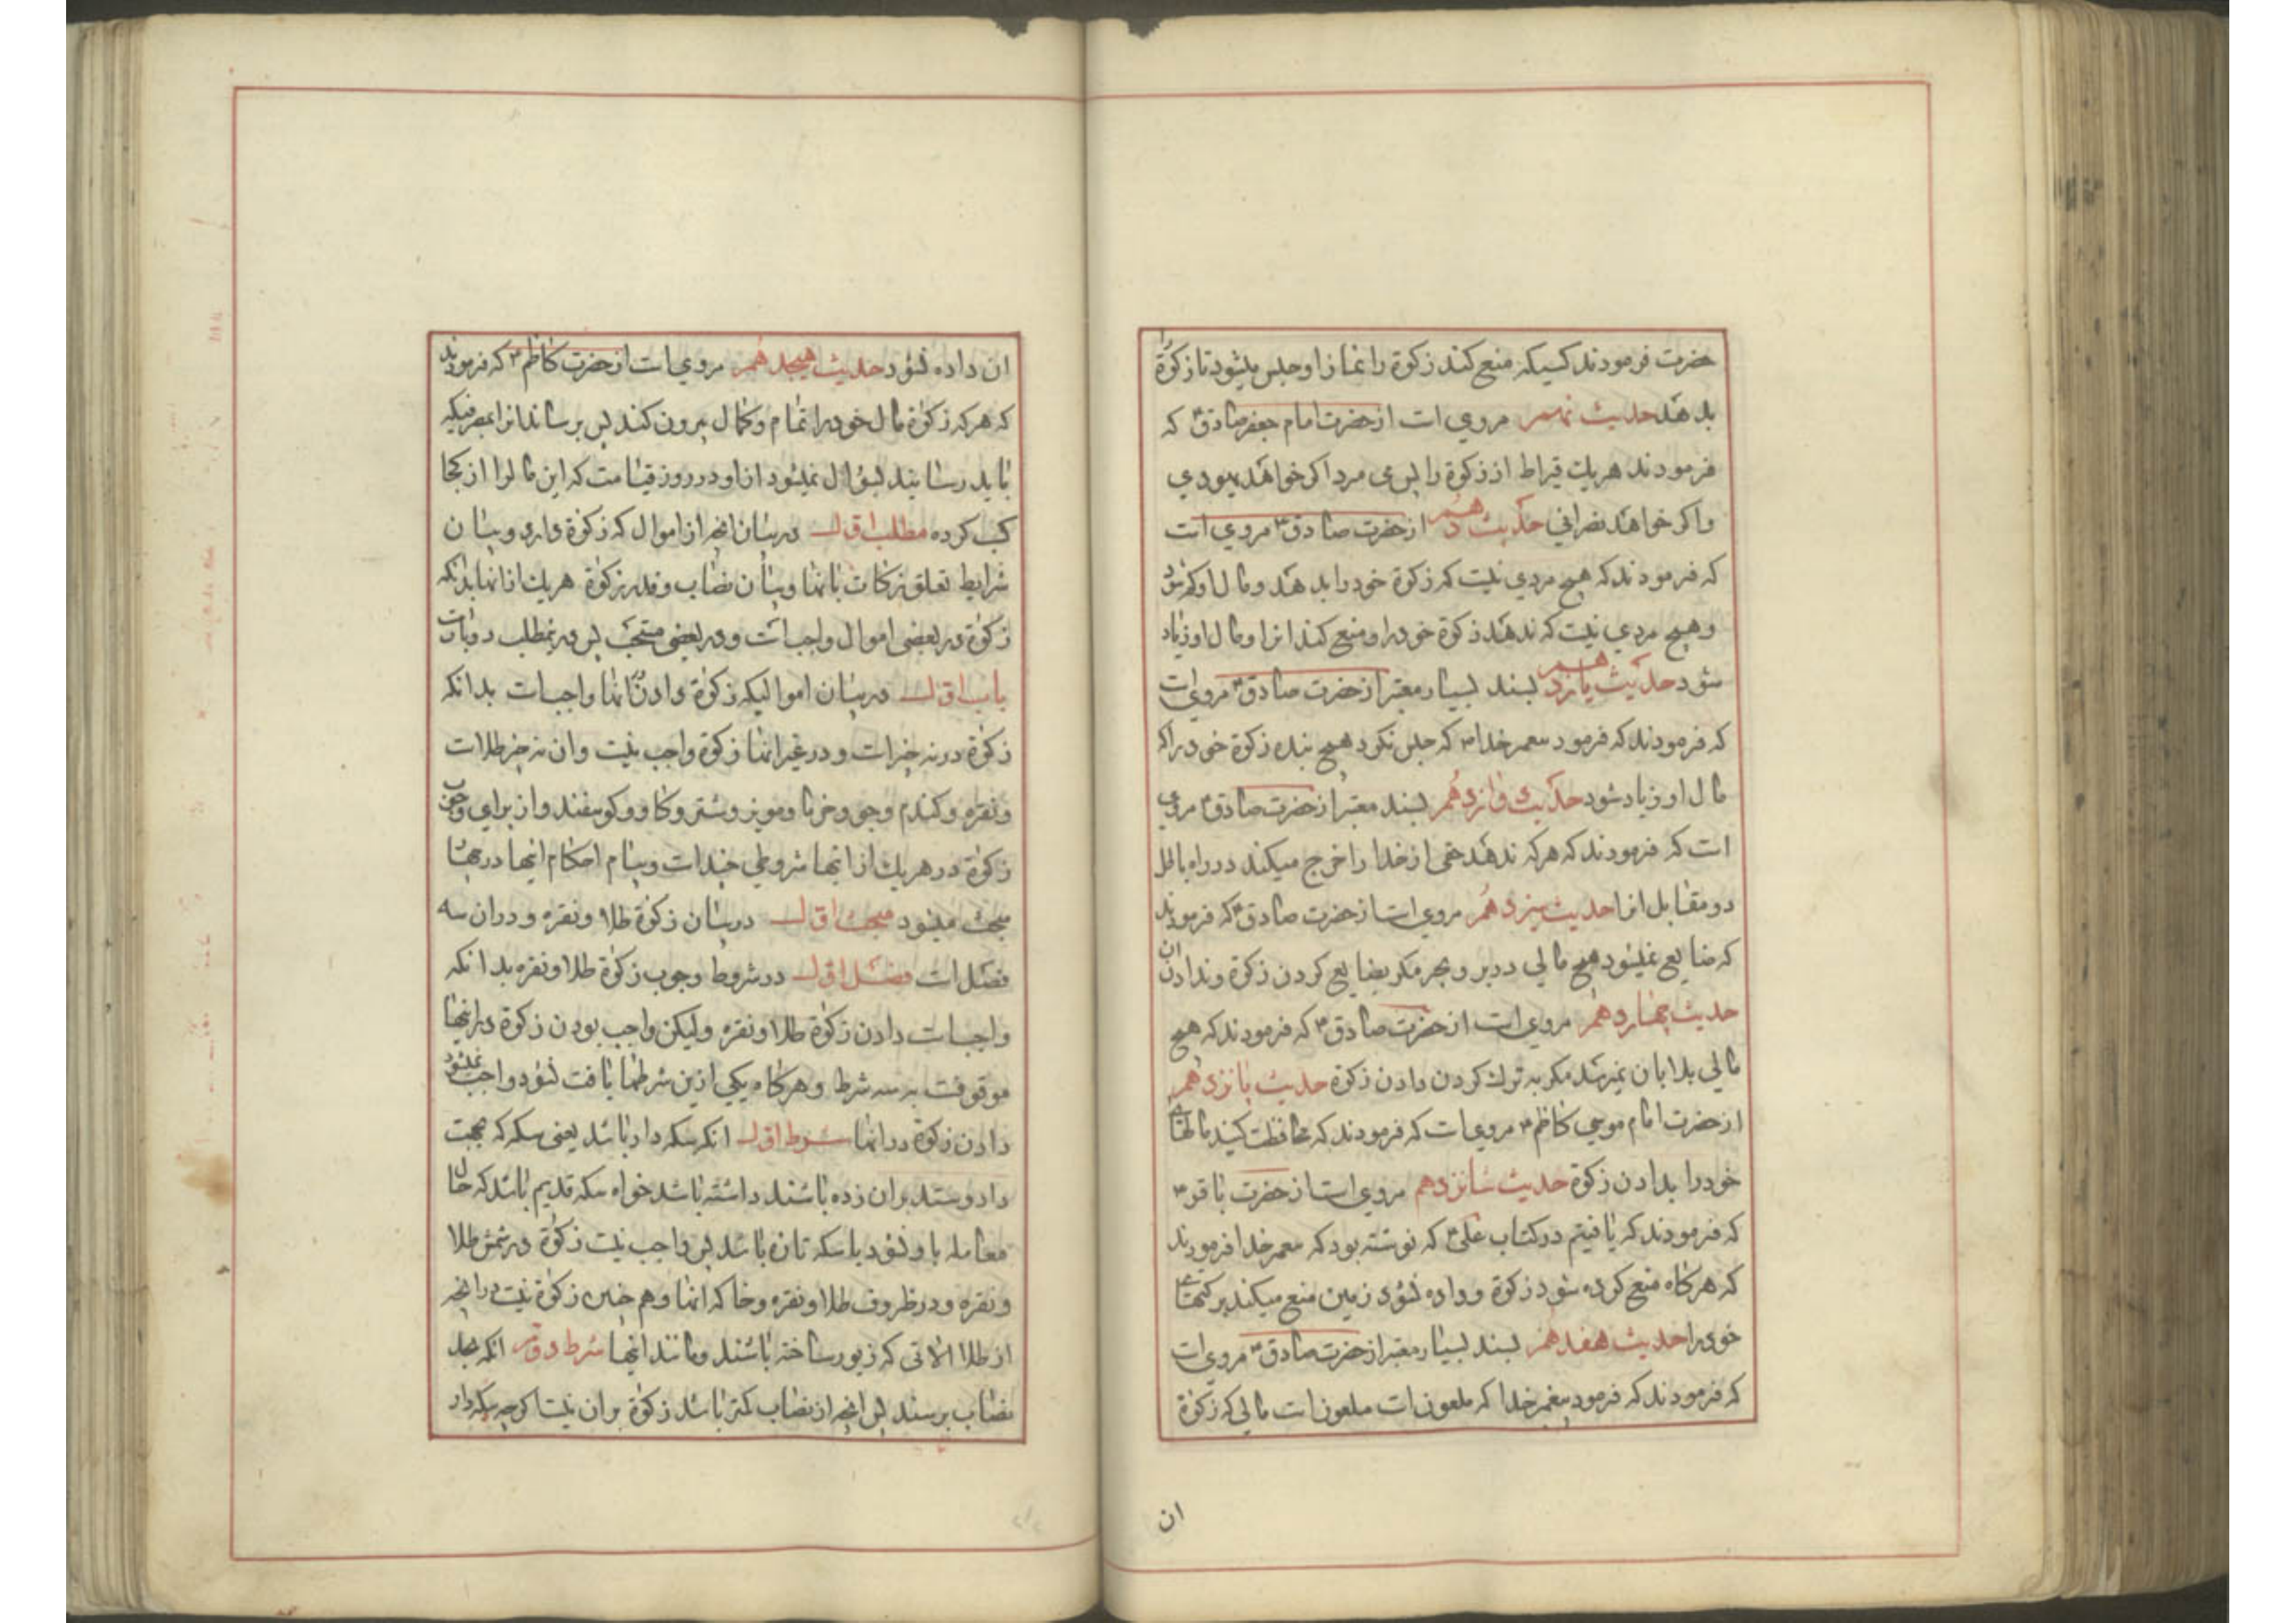 حضرت فرمودند کسیکه منع کند زکوة را نماز او حبس میشود تا زکوة را
بدهد حدیث نهم مرویست از حضرت امام جعفر صادق که
فرمودند هر یك قیراط از زکوة را پس می مرد اکر خواهد یهودي
و اکر خواهد نصرانی حدیث دهم از حضرت صادق مروی است
که فرمودند که هیچ مردی نیست که زکوة خود را بدهد و مال او کم شود
و هیچ مردی نیست که ندهد زکوة خود را و منع کند انرا و مال او زیاد
شود حدیث یازدهم بسند بسیار معتبر از حضرت صادق مرویست
که فرمودند که فرمود پیغمبر خدا که حبس نکرد هیچ بنده زکوة خود را که
مال او زیاد شود حدیث دوازدهم بسند معتبر از حضرت صادق مروی
است که فرمودند که هرکه ندهد حقی از خدا را خرج میکند در راه باطل
دو مقابل انرا حدیث سیزدهم مرویست از حضرت صادق که فرمودند
که ضایع نمیشود هیچ مالی در بر و بحر مکر بضایع کردن زکوة و ندادن ان
حدیث چهاردهم مرویست از حضرت صادق که فرمودند که هیچ
مالی بدابان نمیرسد مکر به ترك کردن دادن زکوة حدیث پانزدهم
از حضرت امام موسی کاظم مرویست که فرمودند که محافظت کنید مالهای
خود را بدادن زکوة حدیث شانزدهم مرویست از حضرت باقر
که فرمودند که یافتیم در کتاب علی که نوشته بود که پیغمبر خدا فرمودند
که هرکاه منع کرده شود زکوة و داده نشود زمین منع میکند برکتهای
خود را حدیث هفدهم بسند بسیار معتبر از حضرت صادق مرویست
که فرمودند که فرمود پیغمبر خدا که ملعونست ملعونست مالی که زکوة
ان
ان داده نشود حدیث هیجدهم مرویست از حضرت کاظم که فرمودند
که هرکه زکوة مال خود را تمام و کمال بیرون کند پس برساند انرا بمصرفیکه
باید رسانید سؤال نمیشود از او در روز قیامت که این مال را از کجا
کسب کرده مطلب اول در بیان انچه از اموال که زکوة دارد و بیان
شرایط تعلق زکات بانها و بیان نصاب و قدر زکوة هر یك از انها بدانکه
زکوة در بعضی اموال واجبست و در بعضی مستحب پس در ینمطلب دو بابست
باب اول در بیان اموالیکه زکوة دادن انها واجبست بدانکه
زکوة در نه چیزست و در غیر انها زکوة واجب نیست و ان نه چیز طلاست
و نقره و کندم و جو و خرما و مویز و شتر و کاو و کوسفند و از برای وجوب
زکوة در هر یك از انها شروطی چندست و بیان احکام انها در چهار
مبحث میشود مبحث اول در بیان زکوة طلا و نقره و در ان سه
فصل است فصل اول در شروط وجوب زکوة طلا و نقره بدانکه
واجبست دادن زکوة طلا و نقره ولیکن واجب بودن زکوة در اینها
موقوفست به سه شرط و هرکاه یکی ازین شرطها یافت نشود واجب نمیشود
دادن زکوة در انها شرط اول انکه سکه دار باشد یعنی سکه که بجهت
داد و ستد بر ان زده باشند داشته باشد خواه سکه قدیم باشد که حال
معامله با و نشود یا سکه تازه باشد پس واجب نیست زکوة در شمش طلا
و نقره و در ظروف طلا و نقره و خاکه انها و هم چنین زکوة نیست در انچه
از طلا الاتی که زیور ساخته باشند و مانند اینها شرط دوم انکه بحد
نصاب برسند پس انچه از نصاب کمتر باشد زکوة بر ان نیست اکرچه سکه دار